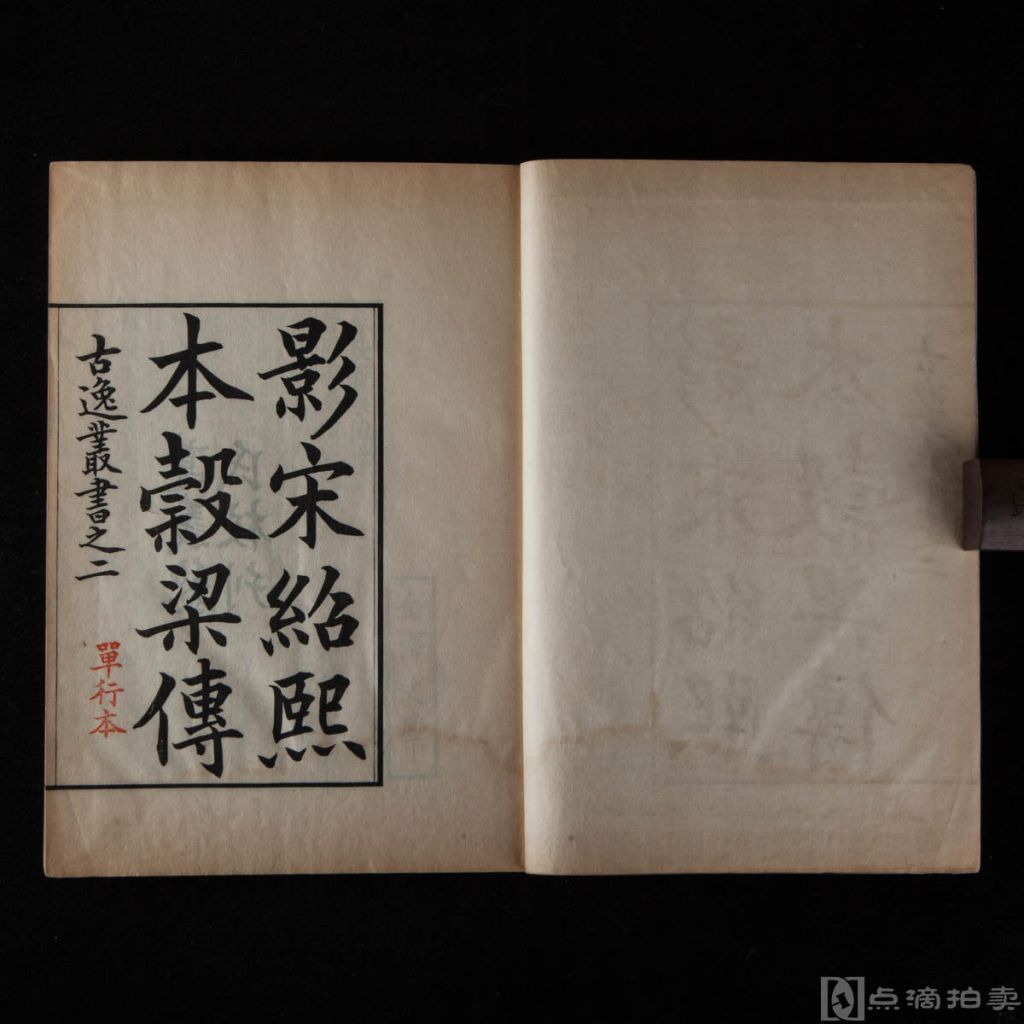 影宋紹熙
本穀梁傳
古逸叢書之二
單行本
点滴拍卖